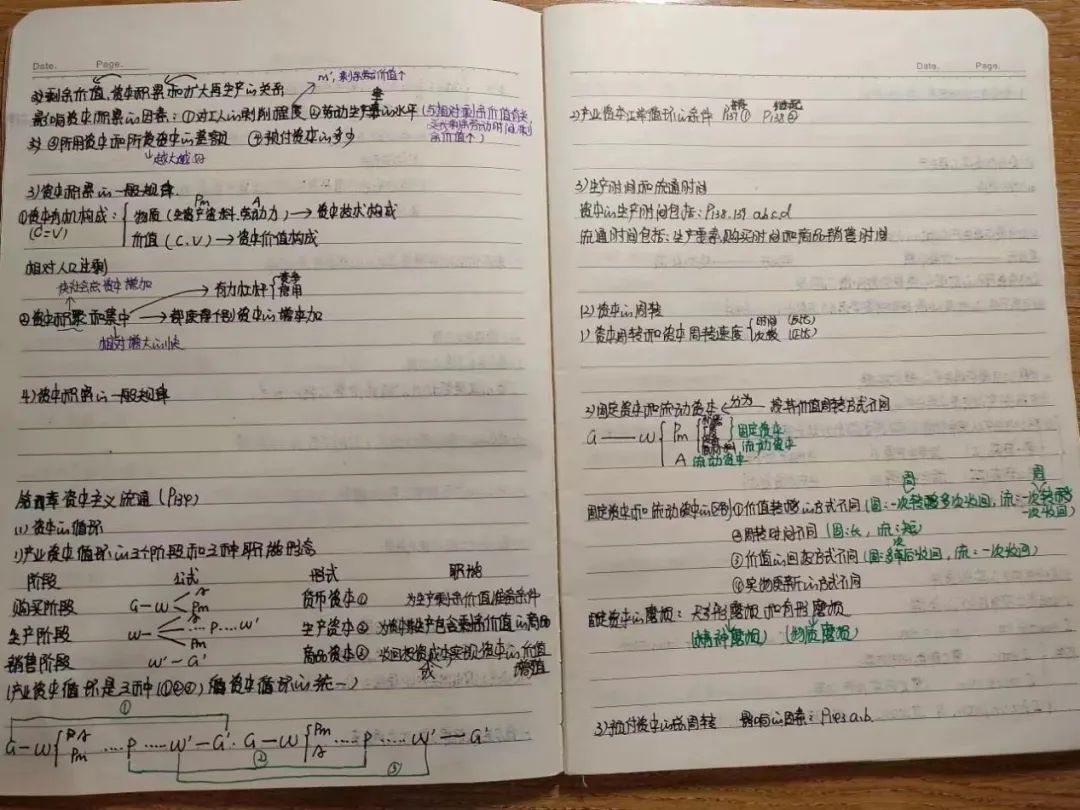 Date. Page.
m',剩余价值↑
2)剩余价值,资本积累和扩大再生产的关系
影响资本积累的因素:①对工人的剥削程度 ②劳动生产率的水平(与相对剩余价值有关
余价值↑)
③所用资本和所费资本的差额 ④预付资本的多少
越大越好
3)资本积累的一般规律.
Pm A
①资本有机构成: 物质(生产资料.劳动力)→资本技术构成
(C=V) 价值(C.V)→资本价值构成
相对人口过剩
使社会总资本增加
→有力杠杆 竞争 信用
②资本积累和集中→都使得个别资本的增加
相对增大的快
4)资本积累的一般规律
第四章资本主义流通(P134)
(1)资本的循环
1)产业资本循环的3个阶段和三种职能形态
阶段 公式 形式 职能
购买阶段 G—W A Pm 货币资本① 为生产剩余价值准备条件
生产阶段 W— A Pm ...P....W' 生产资本② 生产包含剩余价值的商品
销售阶段 W'—G' 商品资本③ 收回投资成本实现资本的价值
增值
(产业资本循环是三种(①②③)资本循环的统一)
①
G—W A Pm ....P.....W'—G'.G—W Pm A ....P.....W'—G'
② ③
Date. Page.
2)产业资本正常循环的条件 P137① P138②
3)生产时间和流通时间
资本的生产时间包括:P138.139 a b.c.d
流通时间包括:生产要素购买时间和商品销售时间
(2)资本的周转
1)资本周转和资本周转速度 时间 (反比)
次数 (正比)
2)固定资本和流动资本 分为 按其价值周转方式不同
G——W Pm 固定资本
流动资本
A 流动资本
周 周
固定资本和流动资本的区别①价值转移的方式不同(固:一次转移多次收回,流:一次转移
一次收回)
②周转时间不同(固:长,流:短)
次
③价值的回收方式不同(固:多年后收回,流:一次收回)
④实物更新的方式不同
固定资本的磨损:无形磨损和有形磨损
(精神磨损) (物质磨损)
3)预付资本的总周转 影响的因素:P143 a.b.